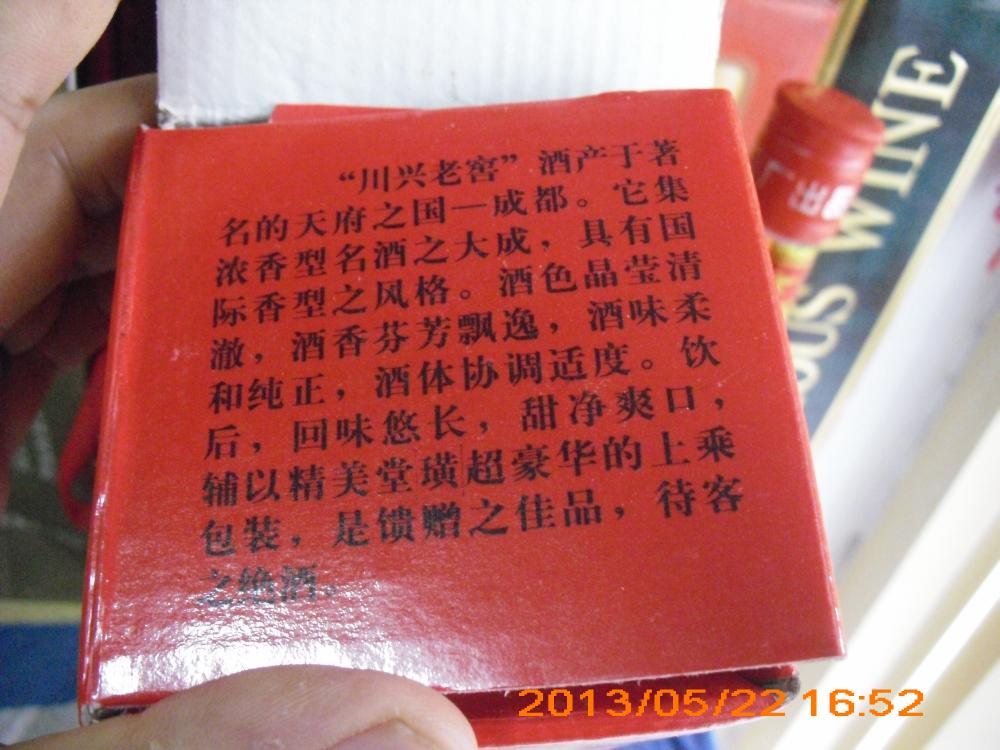 “川兴老窖”酒产于著
名的天府之国—成都。它集
浓香型名酒之大成，具有国
际香型之风格。酒色晶莹清
澈，酒香芬芳飘逸，酒味柔
和纯正，酒体协调适度。饮
后，回味悠长，甜净爽口，
辅以精美堂璜超豪华的上乘
包装，是馈赠之佳品，待客
之绝酒。
WINE
出
2013/05/22 16:52